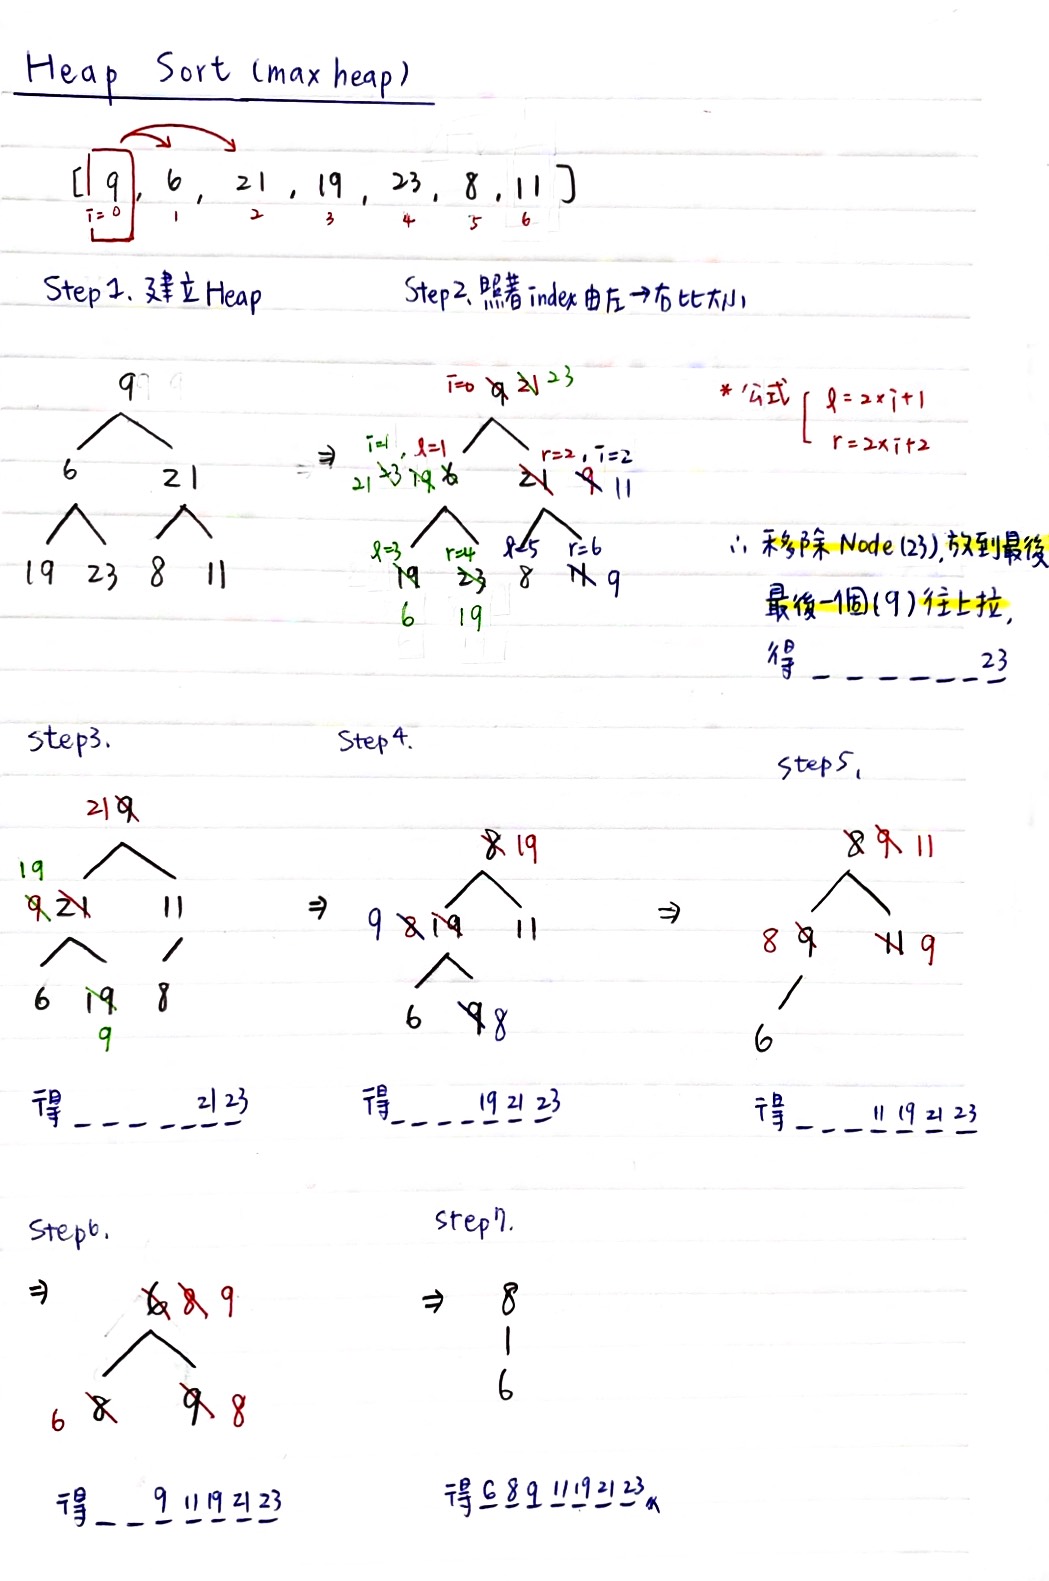 Heap Sort (max heap)
[9, 6, 21, 19, 23, 8, 11]
i=0 1 2 3 4 5 6
Step1. 建立Heap
Step2. 照著index由左→右比大小
9
6 21
19 23 8 11
⇒
i=0 9 21 23
i=1, l=1 r=2, i=2
21 23 19 6 21 9 11
l=3 r=4 l=5 r=6
19 23 8 11 9
6 19
*公式 l=2×i+1
r=2×i+2
∴ 移除Node(23),放到最後
最後一個(9)往上拉,
得 _ _ _ _ _ _ 23
Step3.
21 9
19
9 21 11
6 19 8
9
得 _ _ _ _ _ 21 23
Step4.
⇒
8 19
9 8 19 11
6 9 8
得 _ _ _ _ 19 21 23
Step5.
⇒
8 9 11
8 9 11 9
6
得 _ _ _ 11 19 21 23
Step6.
⇒
6 8 9
6 8 9 8
得 _ _ 9 11 19 21 23
Step7.
⇒ 8
6
得 6 8 9 11 19 21 23